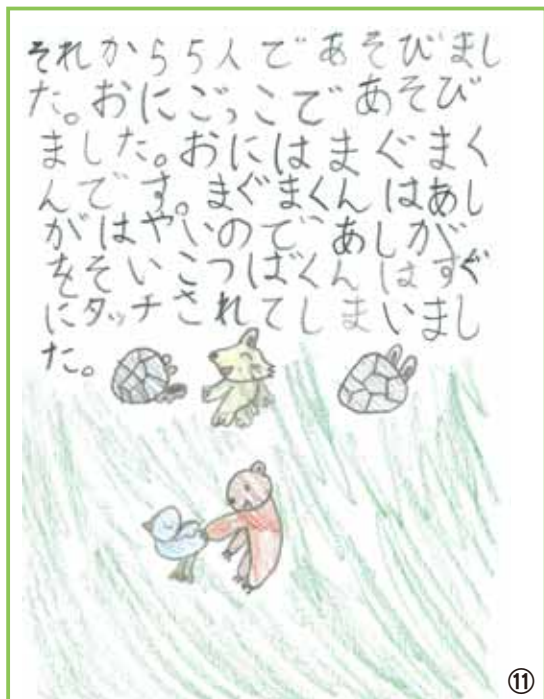 それから5人であそびまし
た。おにごっこであそび
ました。おにはまぐまく
んです。まぐまくんはあし
がはやいので、あしが
をそいこつばくんはすぐ
にタッチされてしまいまし
た。
⑪